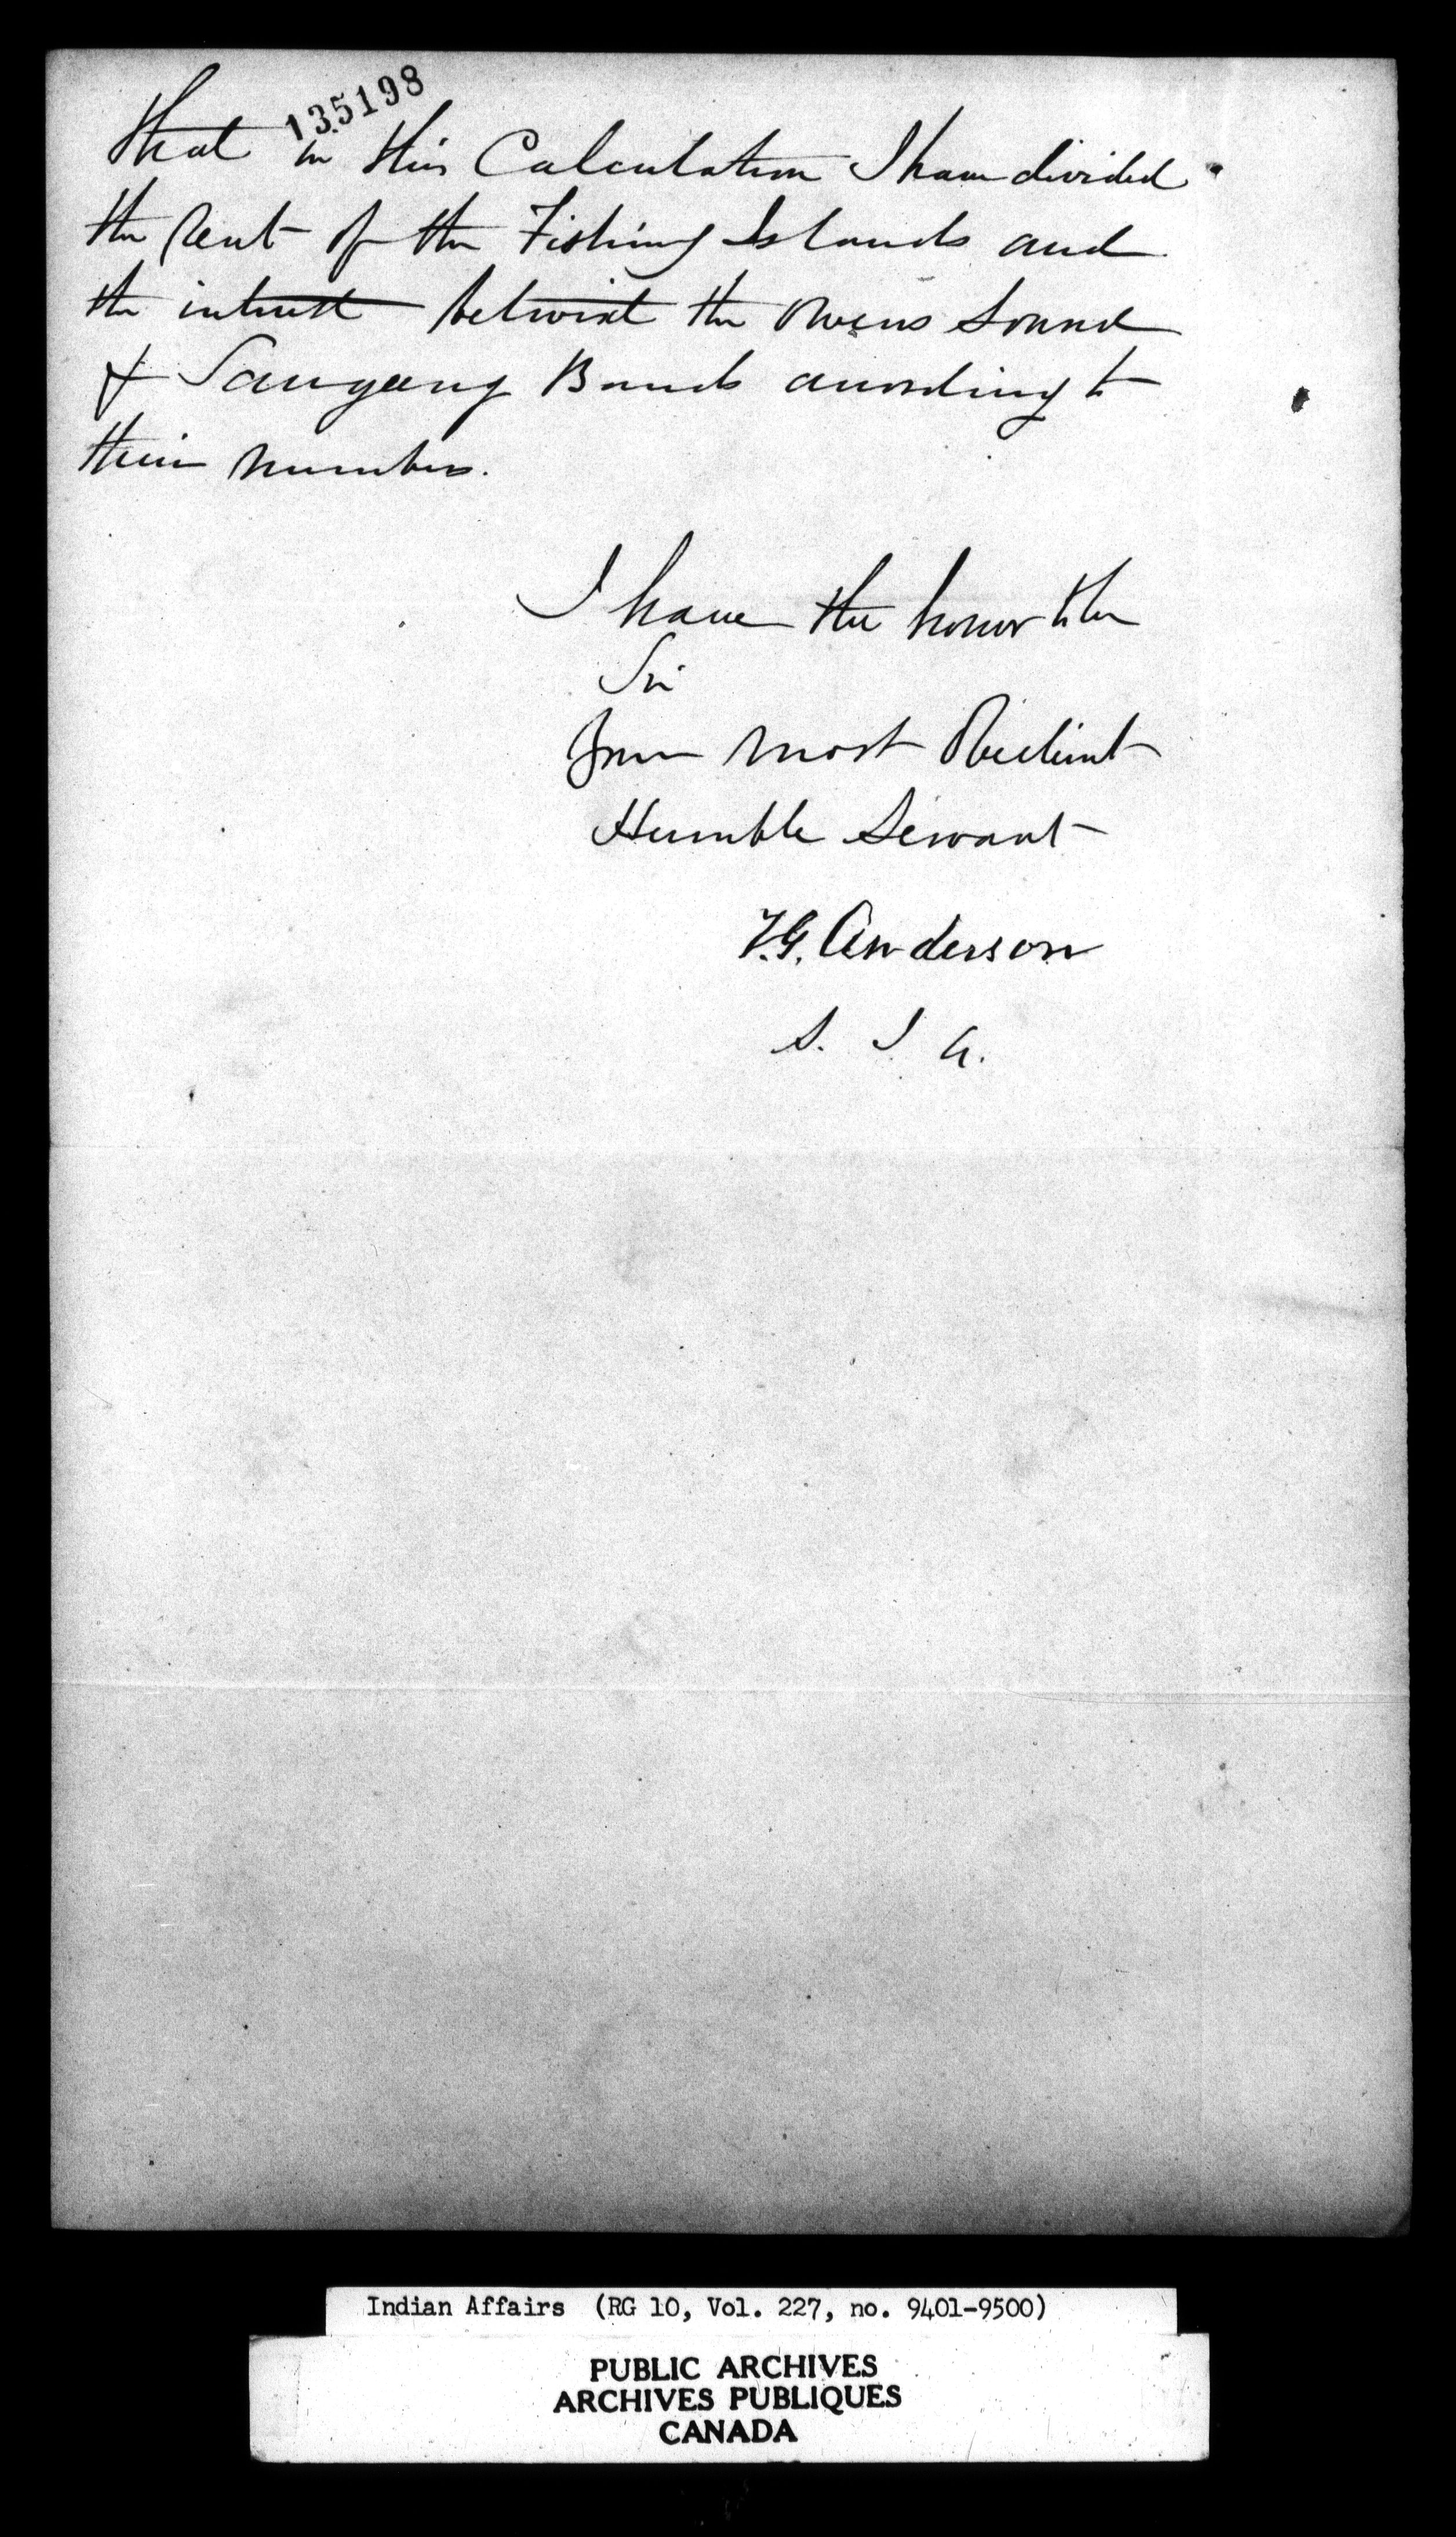 135198
that in this Calculation I have divided
the Rent of the Fishing Islands and
the interest betwixt the Owens Sound
& Saugeeng Bands according to
their numbers.
I have the honor to be
Sir
Your most Obedient
Humble Servant
T.G. Anderson
S. I A.
Indian Affairs (RG 10, Vol. 227, no. 9401-9500)
PUBLIC ARCHIVES
ARCHIVES PUBLIQUES
CANADA